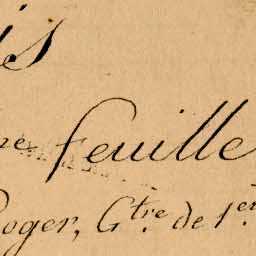 is
ne feuille
Roger, Gtre de 1er